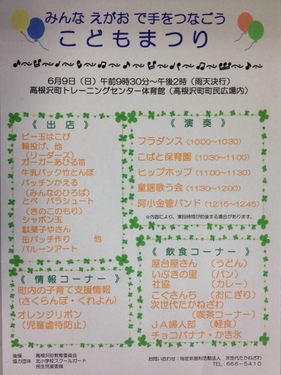 みんな えがお で手をつなごう
こどもまつり
6月9日（日）午前9時30分～午後2時（雨天決行）
高根沢町トレーニングセンター体育館（高根沢町町民広場内）
≪ 出 店 ≫
ビー玉はこび
輪投げ、他
（リーダーズ）
ガーガーあひる笛
牛乳パック竹とんぼ
パッチンかえる
（みんなのひろば）
とべ パラシュート
（きのこのもり）
シャボン玉
駄菓子やさん
缶バッチ作り 他
バルーンアート
≪情報コーナー≫
町内の子育て支援情報
（さくらんぼ・くれよん）
オレンジリボン
（児童虐待防止）
≪ 演 奏 ≫
フラダンス（10:00～10:30）
こばと保育園（10:30～11:00）
ヒップホップ（11:00～11:30）
童謡歌う会（11:30～12:00）
阿小金管バンド（12:15～12:45）
≪飲食コーナー≫
屋台屋さん （うどん）
いぶきの里 （パン）
社協 （カレー）
こぐさんち （おにぎり）
次世代たかねざわ
（喫茶コーナー）
JA婦人部 （軽食）
チョコバナナ・かき氷
後援 高根沢町教育委員会
協力団体 北小学校スクールガード
民生児童委員
お問い合わせ：特定非営利活動法人 次世代たかねざわ
TEL